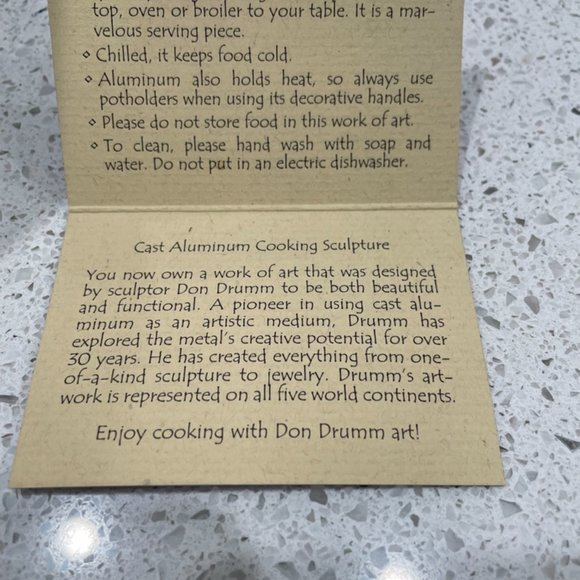 top, oven or broiler to your table. It is a mar-
velous serving piece.
⋄ Chilled, it keeps food cold.
⋄ Aluminum also holds heat, so always use
potholders when using its decorative handles.
⋄ Please do not store food in this work of art.
⋄ To clean, please hand wash with soap and
water. Do not put in an electric dishwasher.
Cast Aluminum Cooking Sculpture
You now own a work of art that was designed
by sculptor Don Drumm to be both beautiful
and functional. A pioneer in using cast alu-
minum as an artistic medium, Drumm has
explored the metal's creative potential for over
30 years. He has created everything from one-
of-a-kind sculpture to jewelry. Drumm's art-
work is represented on all five world continents.
Enjoy cooking with Don Drumm art!